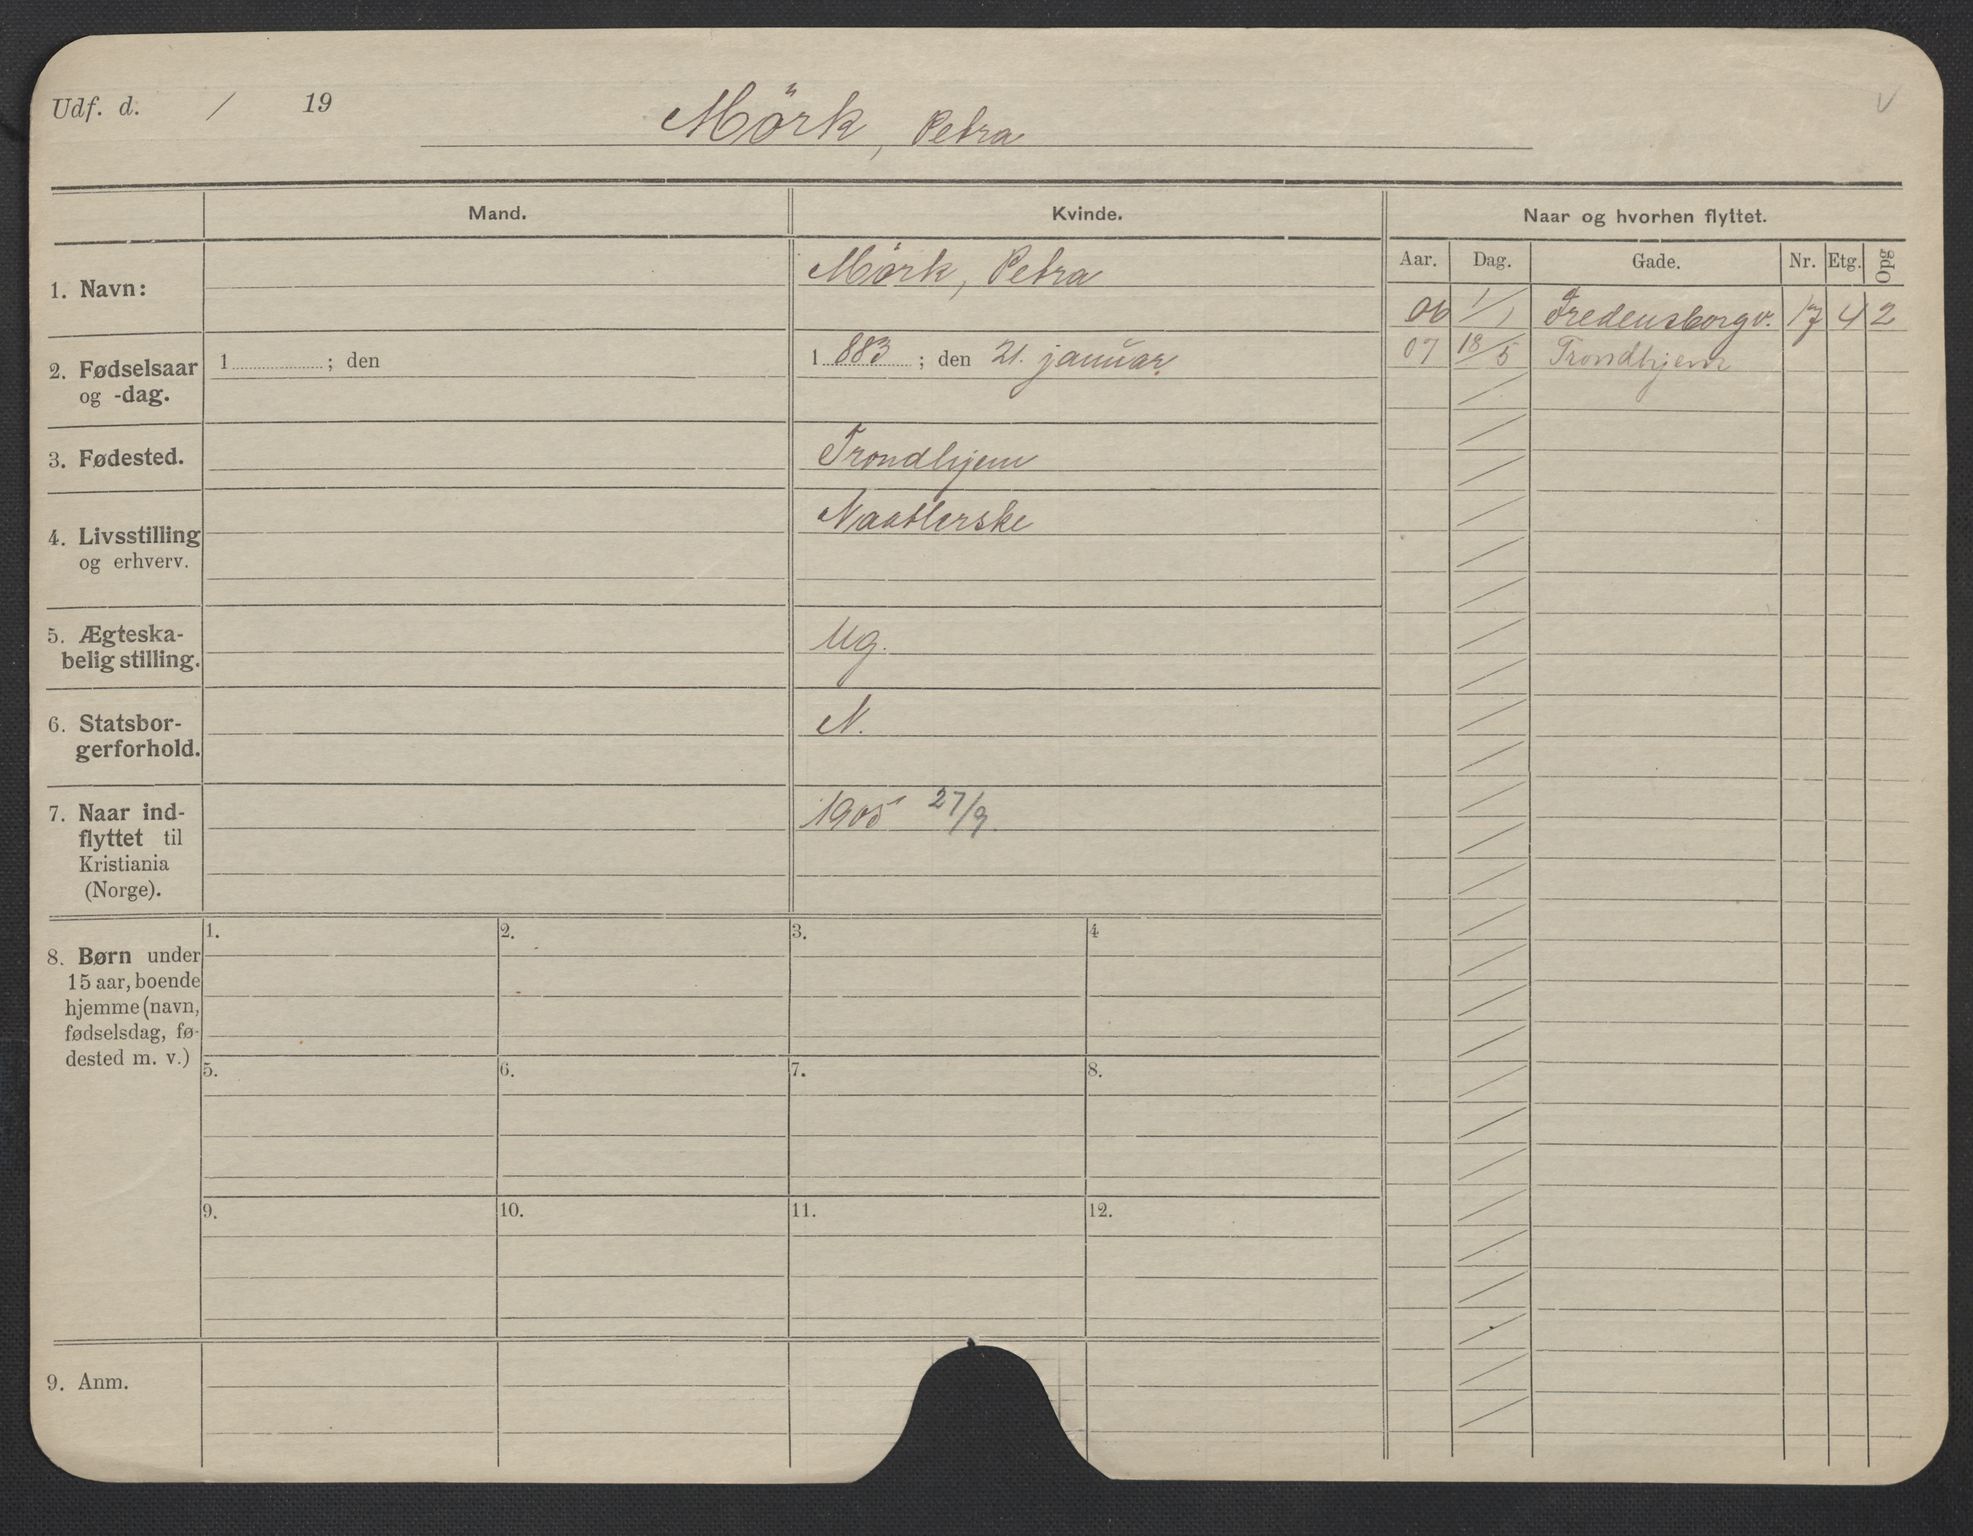 Udf. d. / 19 Mörk, Petra v
Mand. Kvinde. Naar og hvorhen flyttet.
Aar. Dag. Gade. Nr. Etg. Opg
1. Navn: Mörk, Petra
06 1/1 Fredensborgv. 17 4 2
2. Fødselsaar og -dag. 1 ; den 1 883 ; den 21. januar
07 18/5 Trondhjem
3. Fødested. Trondhjem
4. Livsstilling og erhverv. Naatlerske
5. Ægteska-
belig stilling. Ug.
6. Statsbor-
gerforhold. N.
7. Naar ind-
flyttet til
Kristiania
(Norge). 1905 27/9
8. Børn under
15 aar, boende
hjemme (navn,
fødselsdag, fø-
dested m. v.)
1. 2. 3. 4
5. 6. 7. 8.
9. 10. 11. 12.
9. Anm.